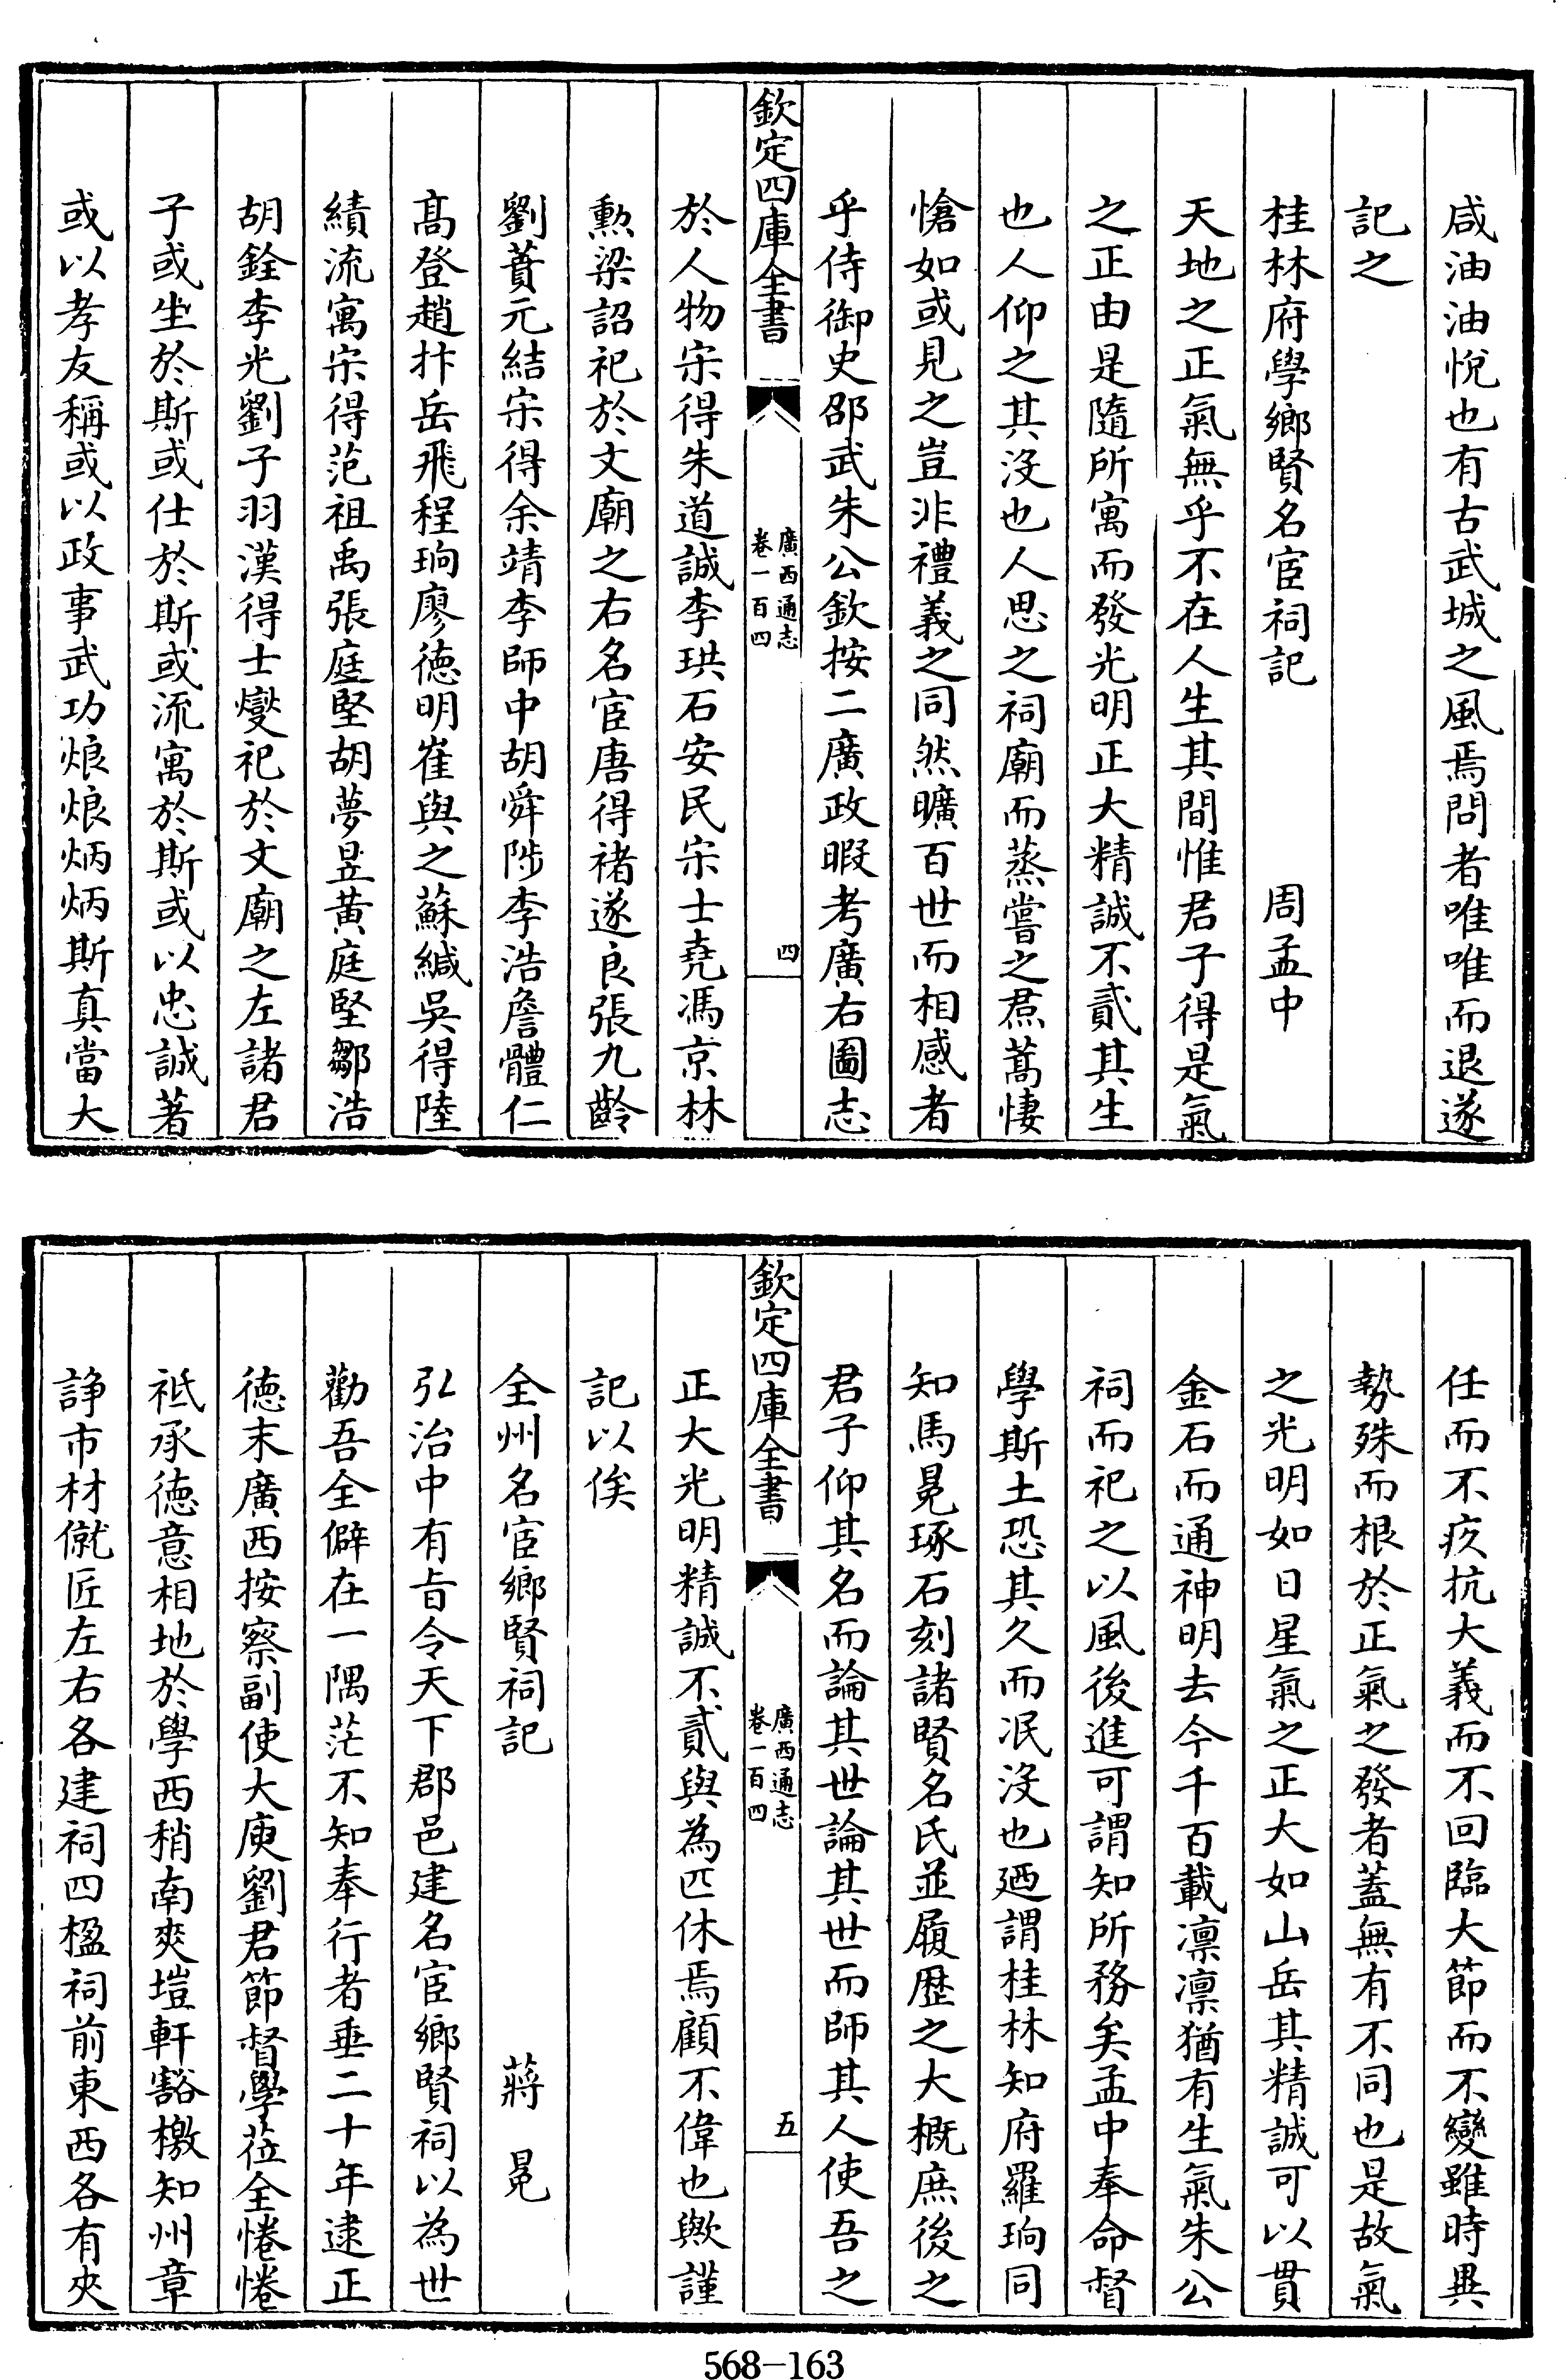 咸油油悅也有古武城之風焉問者唯唯而退遂
記之
桂林府學鄉賢名宦祠記　周孟中
天地之正氣無乎不在人生其間惟君子得是氣
之正由是隨所寓而發光明正大精誠不貳其生
也人仰之其沒也人思之祠廟而蒸嘗之焄蒿悽
愴如或見之豈非禮義之同然曠百世而相感者
乎侍御史邵武朱公欽按二廣政暇考廣右圖志
欽定四庫全書
廣西通志
卷一百四
四
於人物宋得朱道誠李珙石安民宋士堯馮京林
勲梁詔祀於文廟之右名宦唐得褚遂良張九齡
劉蕡元結宋得余靖李師中胡舜陟李浩詹體仁
髙登趙抃岳飛程珦廖徳明崔與之蘇緘吳得陸
績流寓宋得范祖禹張庭堅胡夢昱黄庭堅鄒浩
胡銓李光劉子羽漢得士燮祀於文廟之左諸君
子或生於斯或仕於斯或流寓於斯或以忠誠著
或以孝友稱或以政事武功烺烺炳炳斯真當大
任而不疚抗大義而不回臨大節而不變雖時異
勢殊而根於正氣之發者蓋無有不同也是故氣
之光明如日星氣之正大如山岳其精誠可以貫
金石而通神明去今千百載凛凛猶有生氣朱公
祠而祀之以風後進可謂知所務矣孟中奉命督
學斯土恐其久而泯沒也廼謂桂林知府羅珦同
知馬晃琢石刻諸賢名氏並履歴之大概庶後之
君子仰其名而論其世論其世而師其人使吾之
欽定四庫全書
廣西通志
卷一百四
五
正大光明精誠不貳與為匹休焉顧不偉也歟謹
記以俟
全州名宦鄉賢祠記　蔣冕
弘治中有㫖令天下郡邑建名宦鄉賢祠以為世
勸吾全僻在一隅茫不知奉行者垂二十年逮正
徳末廣西按察副使大庾劉君節督學蒞全惓惓
祗承徳意相地於學西稍南爽塏軒豁檄知州章
諍市材僦匠左右各建祠四楹祠前東西各有夾
568-163